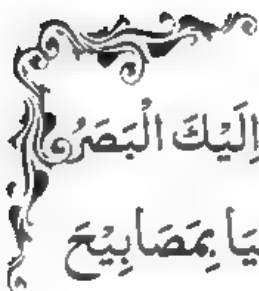 اِلَيْكَ الْبَصَرُ
يَا بِمَصَابِيْحَ